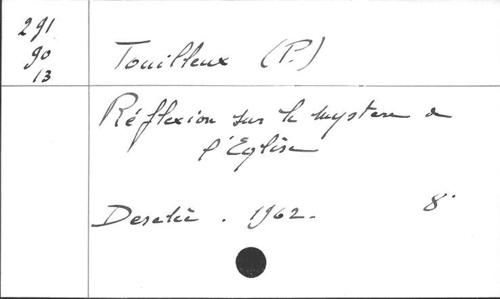 291
90
13
Touilleux (P.)
Réflexion sur le mystère de
l'Eglise
Desclée. 1962. 8°